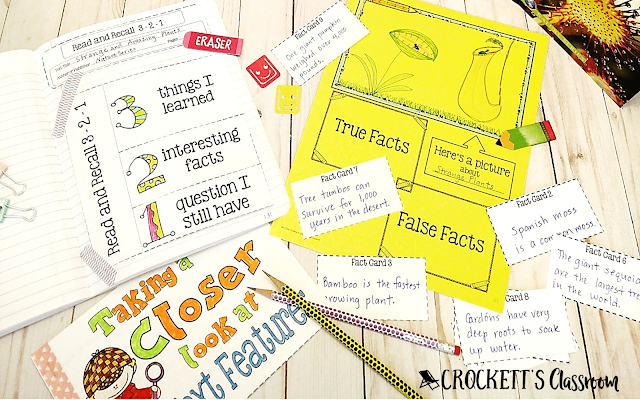 Read and Recall 3-2-1
Strange and Amazing Plants
Nature Series
Read and Recall 3-2-1
3 things I
learned
2 interesting
facts
1 question I
still have
ERASER
Fact Card 5
One giant pumpkin
weighed over
pounds.
True Facts
Here's a picture
about
Strange Plants
False Facts
Fact Card 7
Tree tumbos can
survive for 1,000
years in the desert.
Fact Card 2
Spanish moss
is a common moss.
Fact Card 3
Bamboo is the fastest
growing plant.
Fact Card 6
The giant sequoia
are the largest
in the world.
Card 8
Cardóns have very
deep roots to soak
up water.
Taking a
Closer
look at
Text Features
CROCKETT'S Classroom